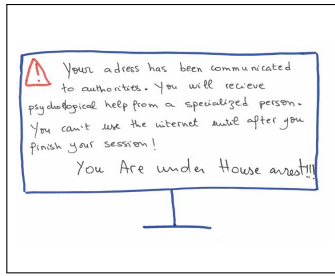 Your adress has been communicated
to authorities. You will recieve
psychological help from a specialized person.
You can't use the internet until after you
finish your session!
You Are under House arrest!!!